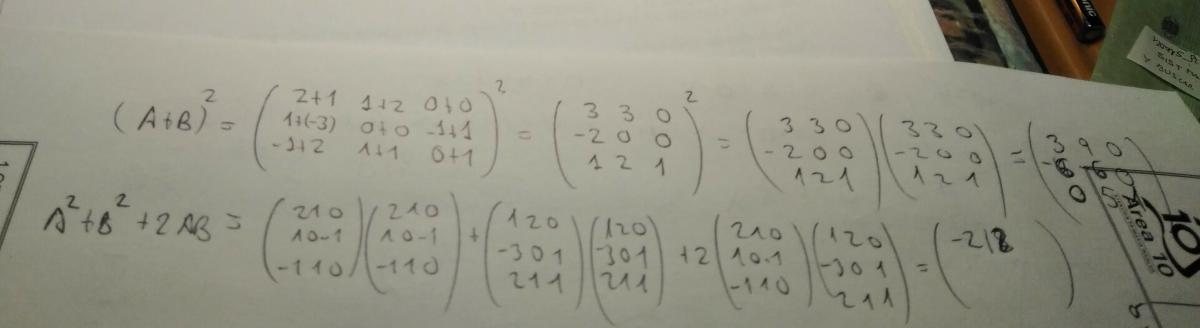 (A+B)² = ( 2+1 1+2 0+0 ; 1+(-3) 0+0 -1+1 ; -1+2 1+1 0+1 )² = ( 3 3 0 ; -2 0 0 ; 1 2 1 )² = ( 3 3 0 ; -2 0 0 ; 1 2 1 )( 3 3 0 ; -2 0 0 ; 1 2 1 ) = ( 3 9 0 ; -6 -6 0 ; 0
A²+B²+2AB = ( 2 1 0 ; 1 0 -1 ; -1 1 0 )( 2 1 0 ; 1 0 -1 ; -1 1 0 ) + ( 1 2 0 ; -3 0 1 ; 2 1 1 )( 1 2 0 ; -3 0 1 ; 2 1 1 ) + 2( 2 1 0 ; 1 0 -1 ; -1 1 0 )( 1 2 0 ; -3 0 1 ; 2 1 1 ) = ( -2
10
Área 10